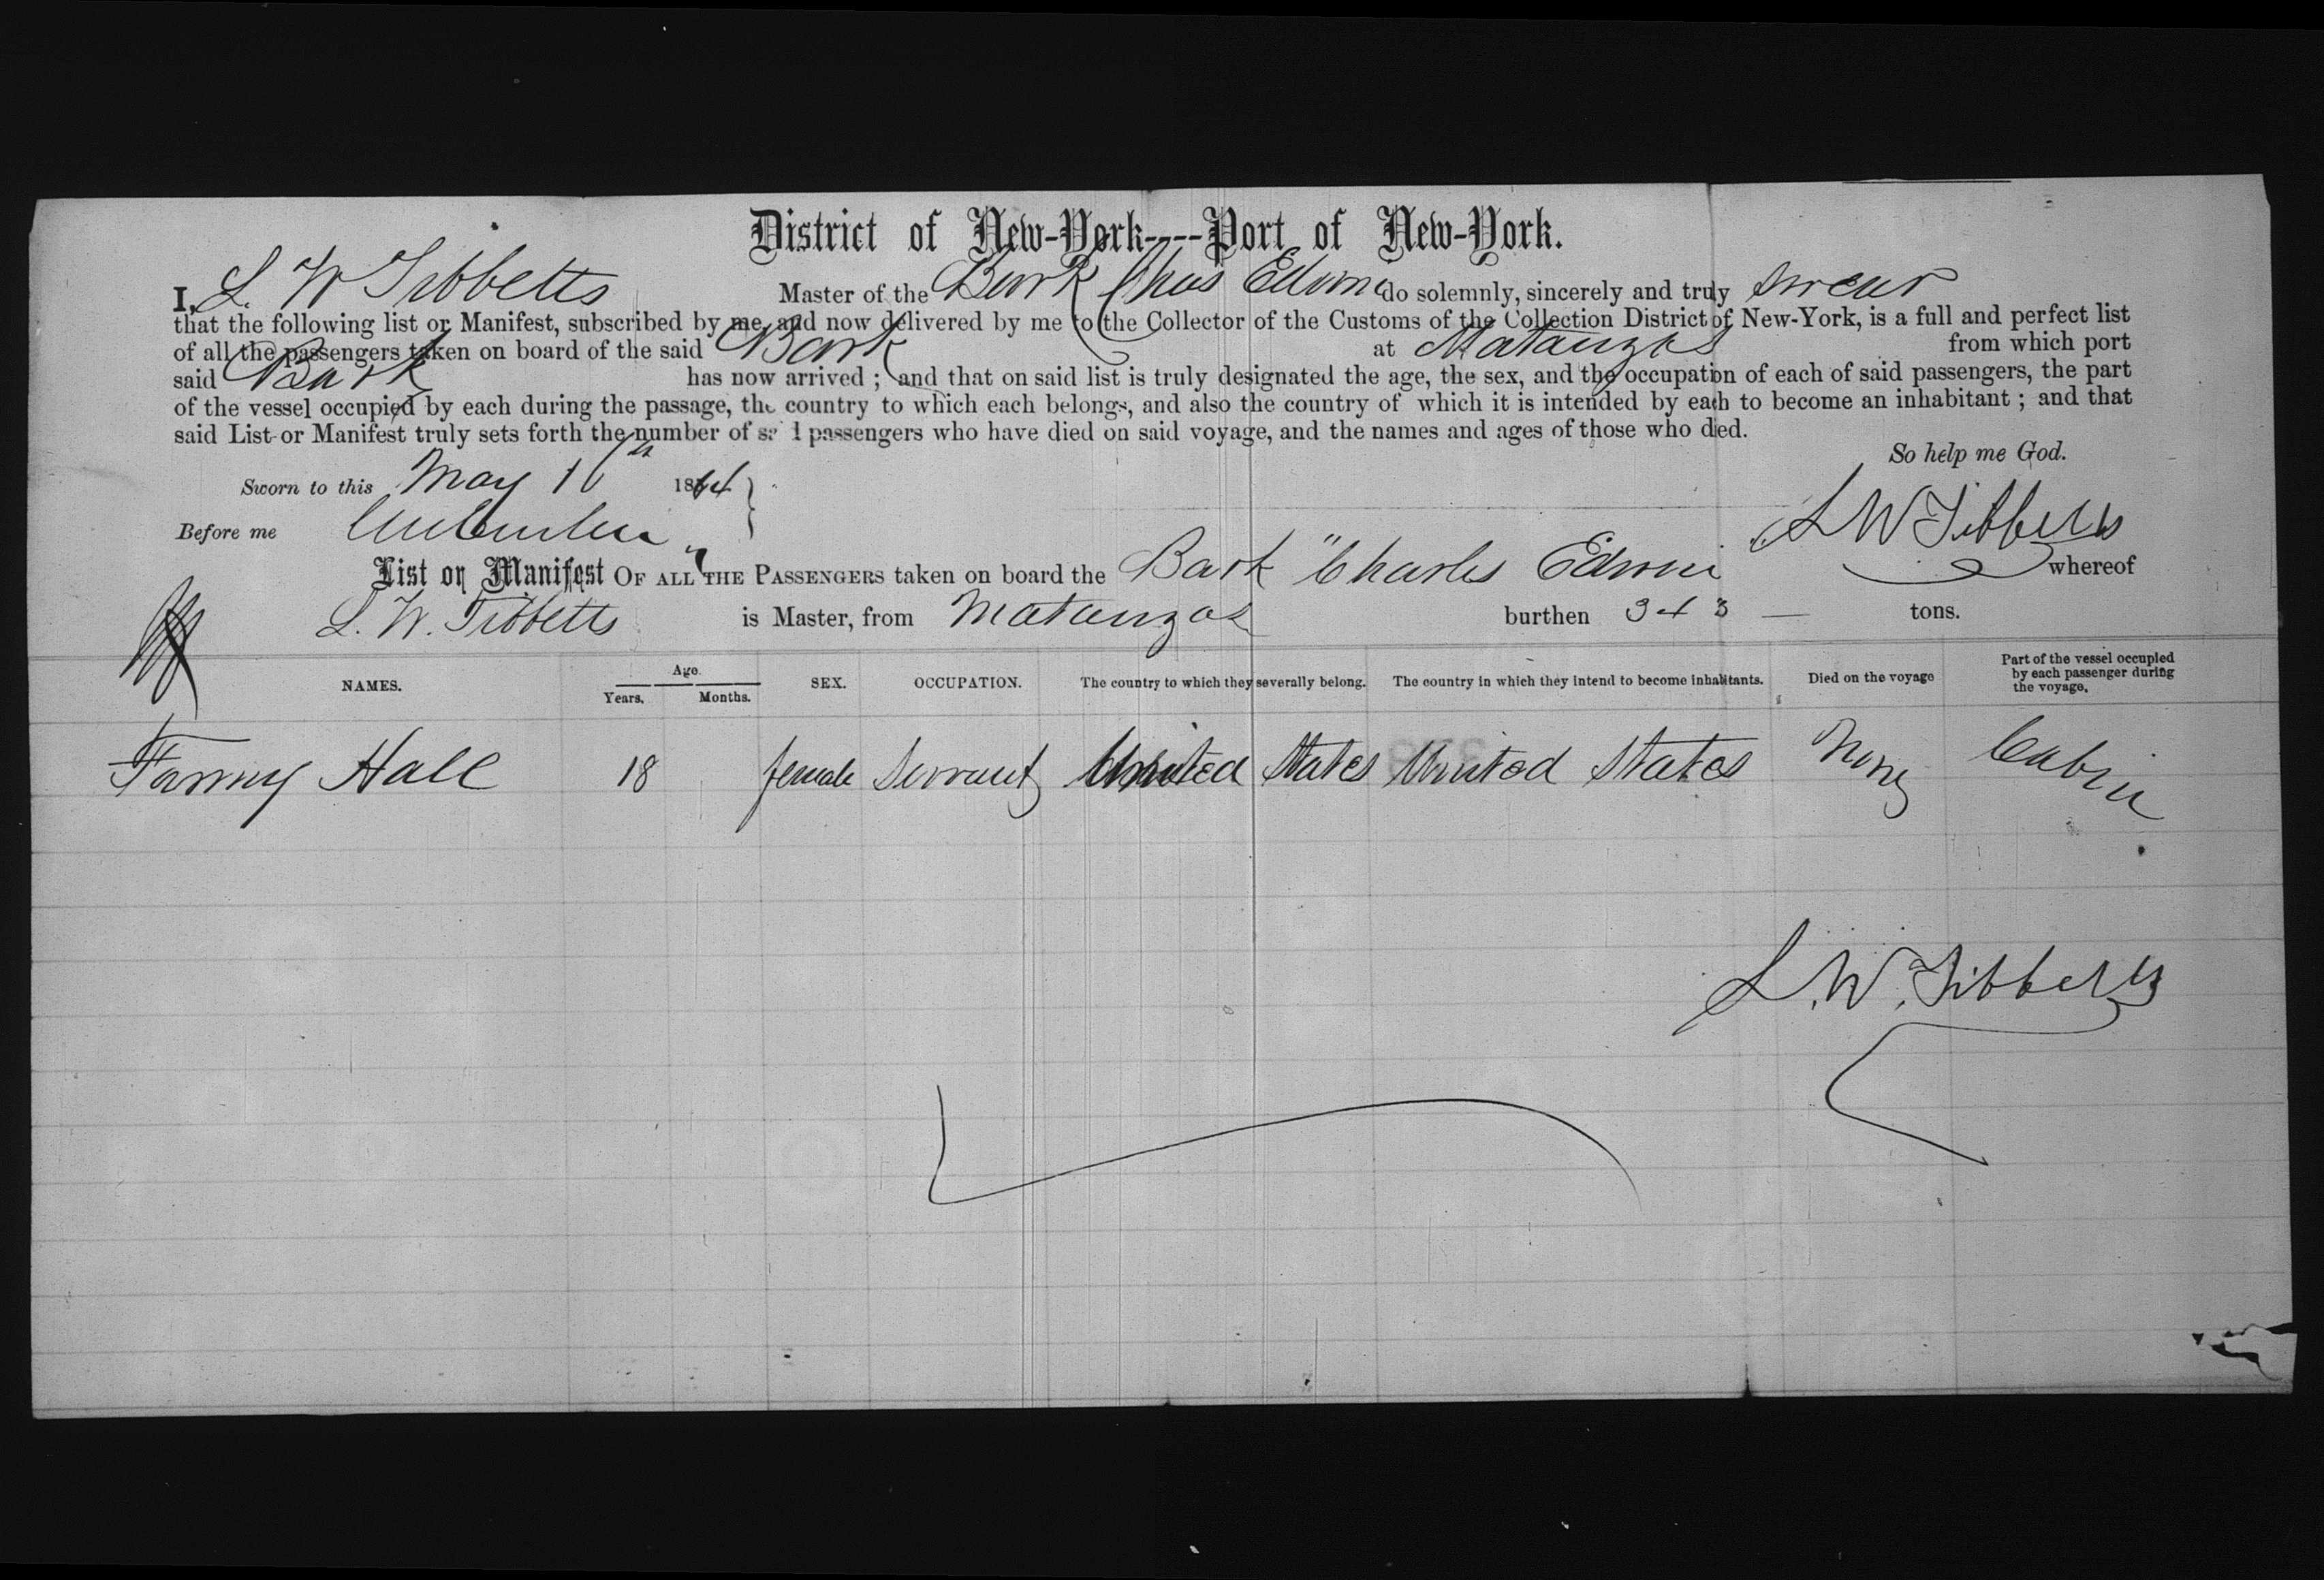 District of New-York----Port of New-York.
I, L. W Tibbetts Master of the Bark Chas Edwin do solemnly, sincerely and truly swear
that the following list or Manifest, subscribed by me, and now delivered by me to the Collector of the Customs of the Collection District of New-York, is a full and perfect list
of all the passengers taken on board of the said Bark at Matanzas from which port
said Bark has now arrived ; and that on said list is truly designated the age, the sex, and the occupation of each of said passengers, the part
of the vessel occupied by each during the passage, the country to which each belongs, and also the country of which it is intended by each to become an inhabitant ; and that
said List or Manifest truly sets forth the number of said passengers who have died on said voyage, and the names and ages of those who died.
So help me God.
Sworn to this May 1864
Before me
L W Tibbetts
List or Manifest OF ALL THE PASSENGERS taken on board the Bark "Charles Edwin" whereof
L. W. Tibbetts is Master, from Matanzas burthen 343 — tons.
NAMES. Age. Years. Months. SEX. OCCUPATION. The country to which they severally belong. The country in which they intend to become inhabitants. Died on the voyage Part of the vessel occupied by each passenger during the voyage.
Fanny Hall 18 female Servant United States United States None Cabin
L. W. Tibbetts